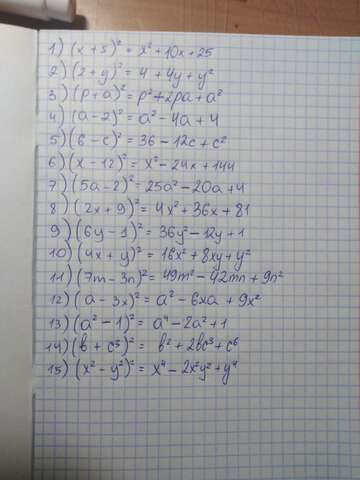 1) (x + 5)² = x² + 10x + 25
2) (2 + y)² = 4 + 4y + y²
3) (p + a)² = p² + 2pa + a²
4) (a - 2)² = a² - 4a + 4
5) (6 - c)² = 36 - 12c + c²
6) (x - 12)² = x² - 24x + 144
7) (5a - 2)² = 25a² - 20a + 4
8) (2x + 9)² = 4x² + 36x + 81
9) (6y - 1)² = 36y² - 12y + 1
10) (4x + y)² = 16x² + 8xy + y²
11) (7m - 3n)² = 49m² - 42mn + 9n²
12) (a - 3x)² = a² - 6xa + 9x²
13) (a² - 1)² = a⁴ - 2a² + 1
14) (b + c³)² = b² + 2bc³ + c⁶
15) (x² - y²)² = x⁴ - 2x²y² + y⁴